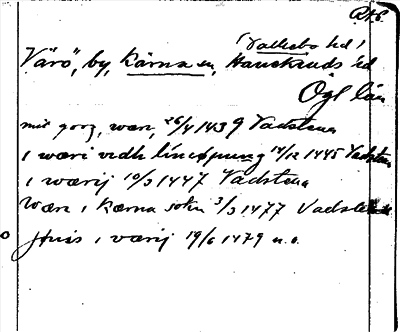 R.A.E.
(Valkebo hd)
Värö, by, Kärna sn, Hanekinds hd
Ögl län
mit gorz, wæn, 26/4 1439 Vadstena
i wæri vidh lincöpung 14/12 1445 Vadstena
i wærij 10/3 1447 Vadstena
Wæn i Kærna sokn 3/3 1477 Vadstena
Huis i værij 19/6 1479 u.o.